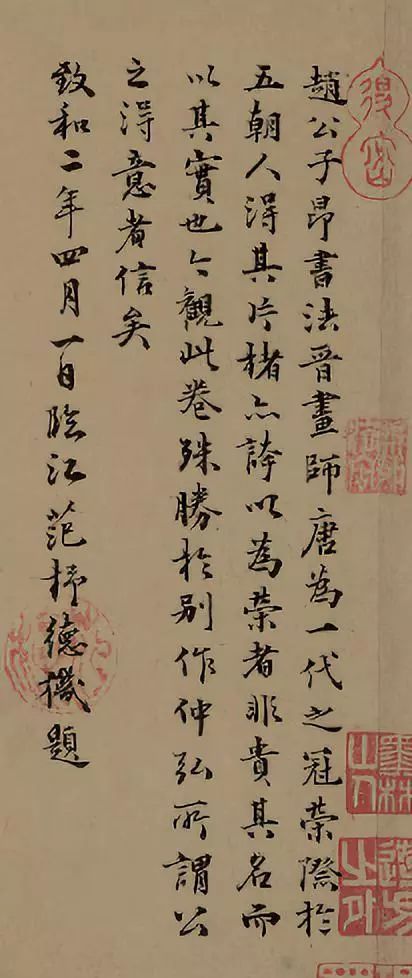 趙公子昂書法晉畫師唐為一代之冠榮際於
五朝人得其片楮亦誇以為榮者非貴其名而
以其實也今觀此卷殊勝於别作仲弘所謂公
之得意者信矣
致和二年四月一日臨江范梈德機題